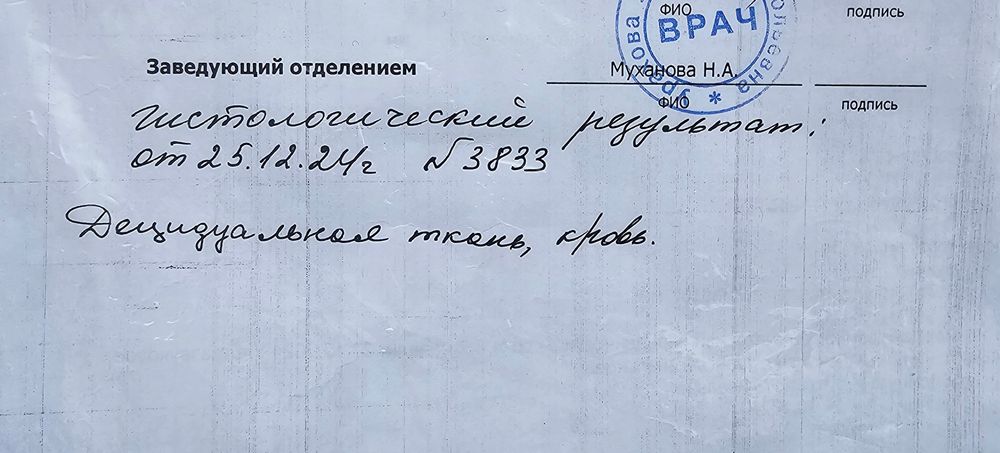 ФИО
подпись
ВРАЧ
Заведующий отделением
Муханова Н.А.
ФИО
подпись
гистологический результат:
от 25.12.24г №3833
Децидуальная ткань, кровь.